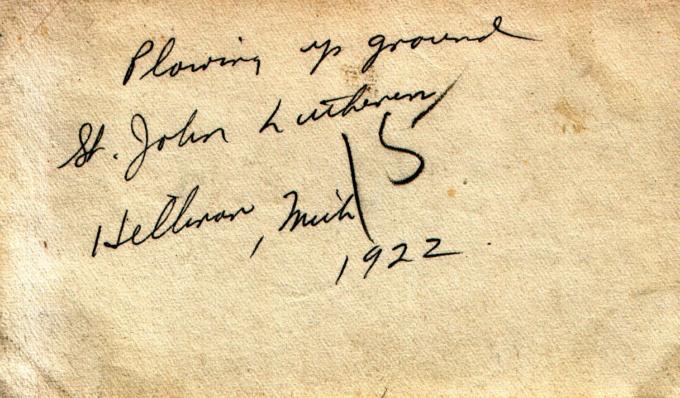 Plowing up ground
St. John Lutheren
15
Hellman, Mich
1922